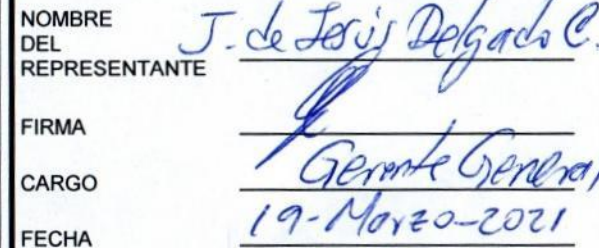 NOMBRE
DEL
REPRESENTANTE J. de Jesús Delgado C.
FIRMA
CARGO Gerente General
FECHA 19-Marzo-2021